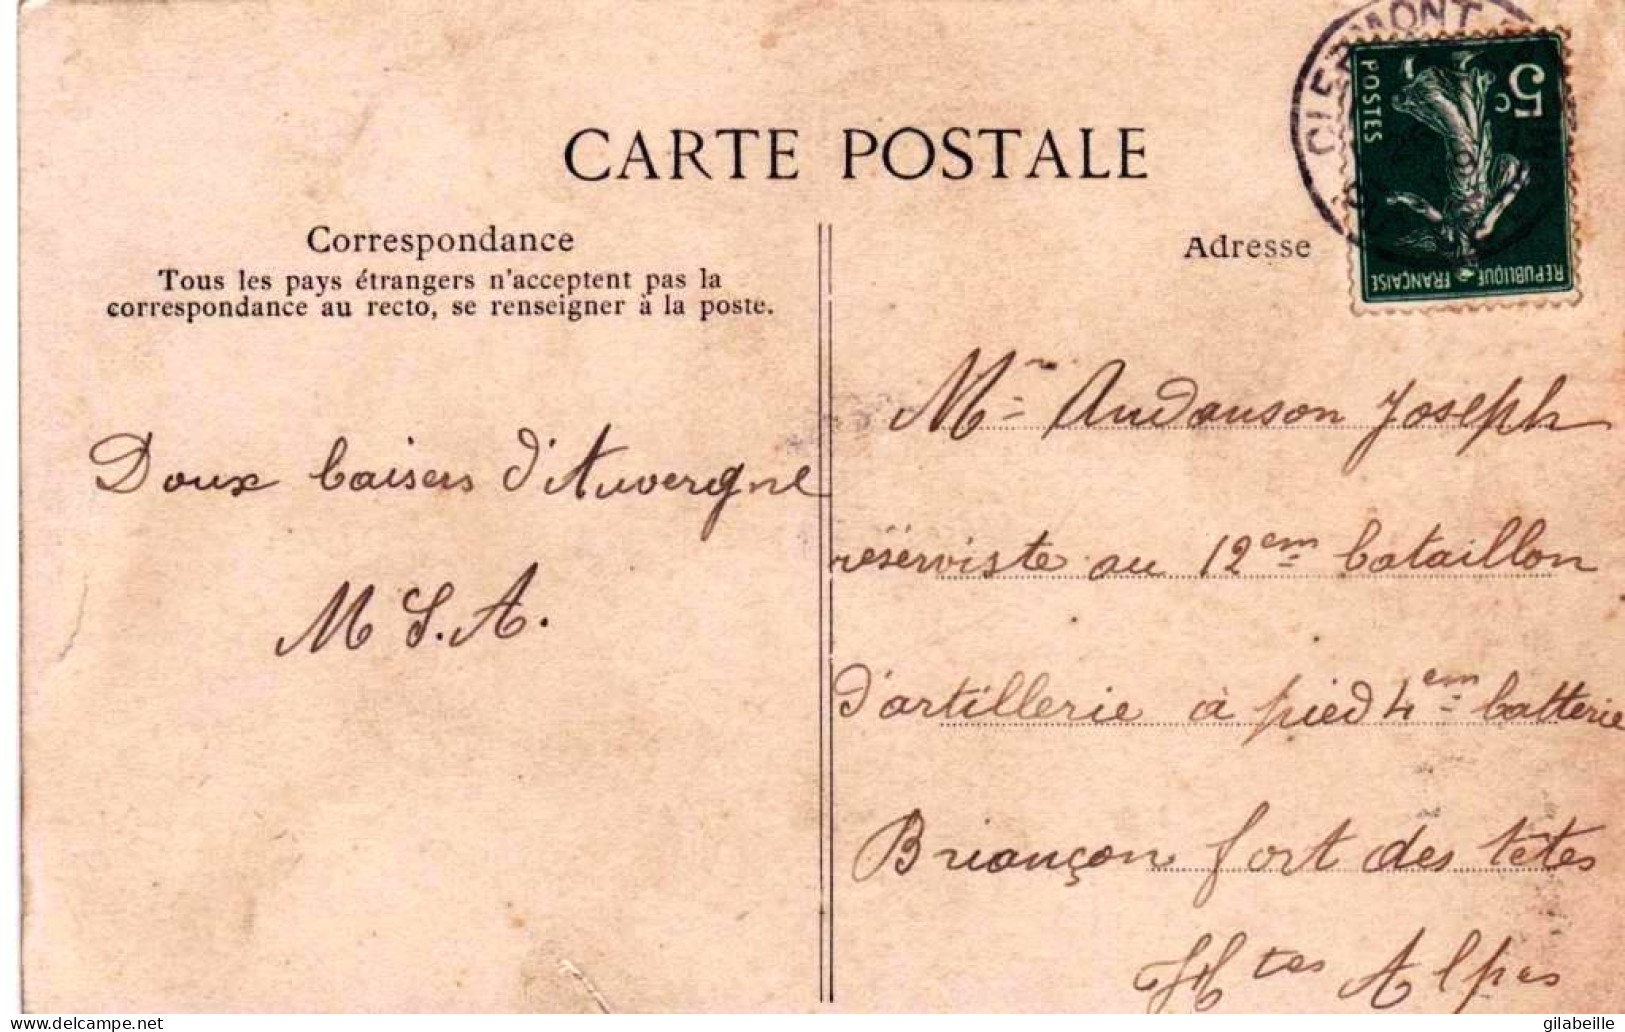 CARTE POSTALE
Correspondance
Tous les pays étrangers n'acceptent pas la
correspondance au recto, se renseigner à la poste.
Doux baisers d'Auvergne
M S. A.
Adresse
CLERMONT
5c
POSTES
REPUBLIQUE FRANÇAISE
Mr Andanson Joseph
réserviste au 12em bataillon
d'artillerie à pied 4em batterie
Briançon fort des têtes
Htes Alpes
delcampe.net
gilabeille